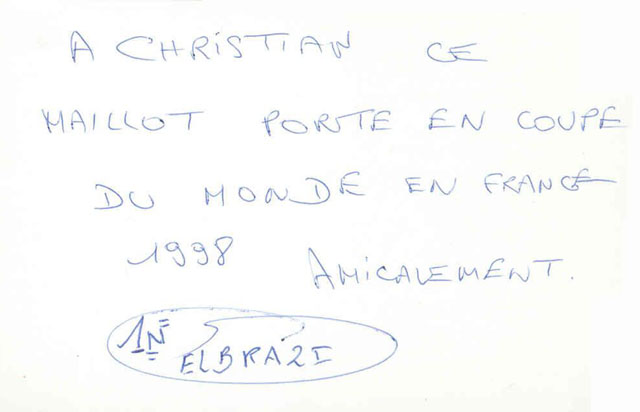 A CHRISTIAN CE
MAILLOT PORTE EN COUPE
DU MONDE EN FRANCE
1998 AMICALEMENT.
ELBRAZI